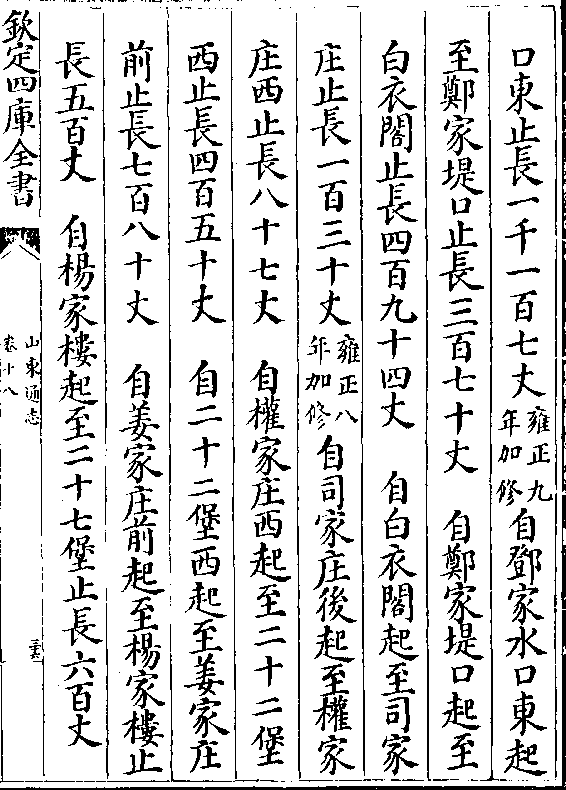 口東止長一千一百七丈雍正九年加修自鄧家水口東起
至鄭家堤口止長三百七十丈　自鄭家堤口起至
白衣閣止長四百九十四丈　自白衣閣起至司家
庄止長一百三十丈雍正八年加修自司家庄後起至權家
庄西止長八十七丈　自權家庄西起至二十二堡
西止長四百五十丈　自二十二堡西起至姜家庄
前止長七百八十丈　自姜家庄前起至楊家樓止
長五百丈　自楊家樓起至二十七堡止長六百丈
欽定四庫全書
山東通志
卷十八